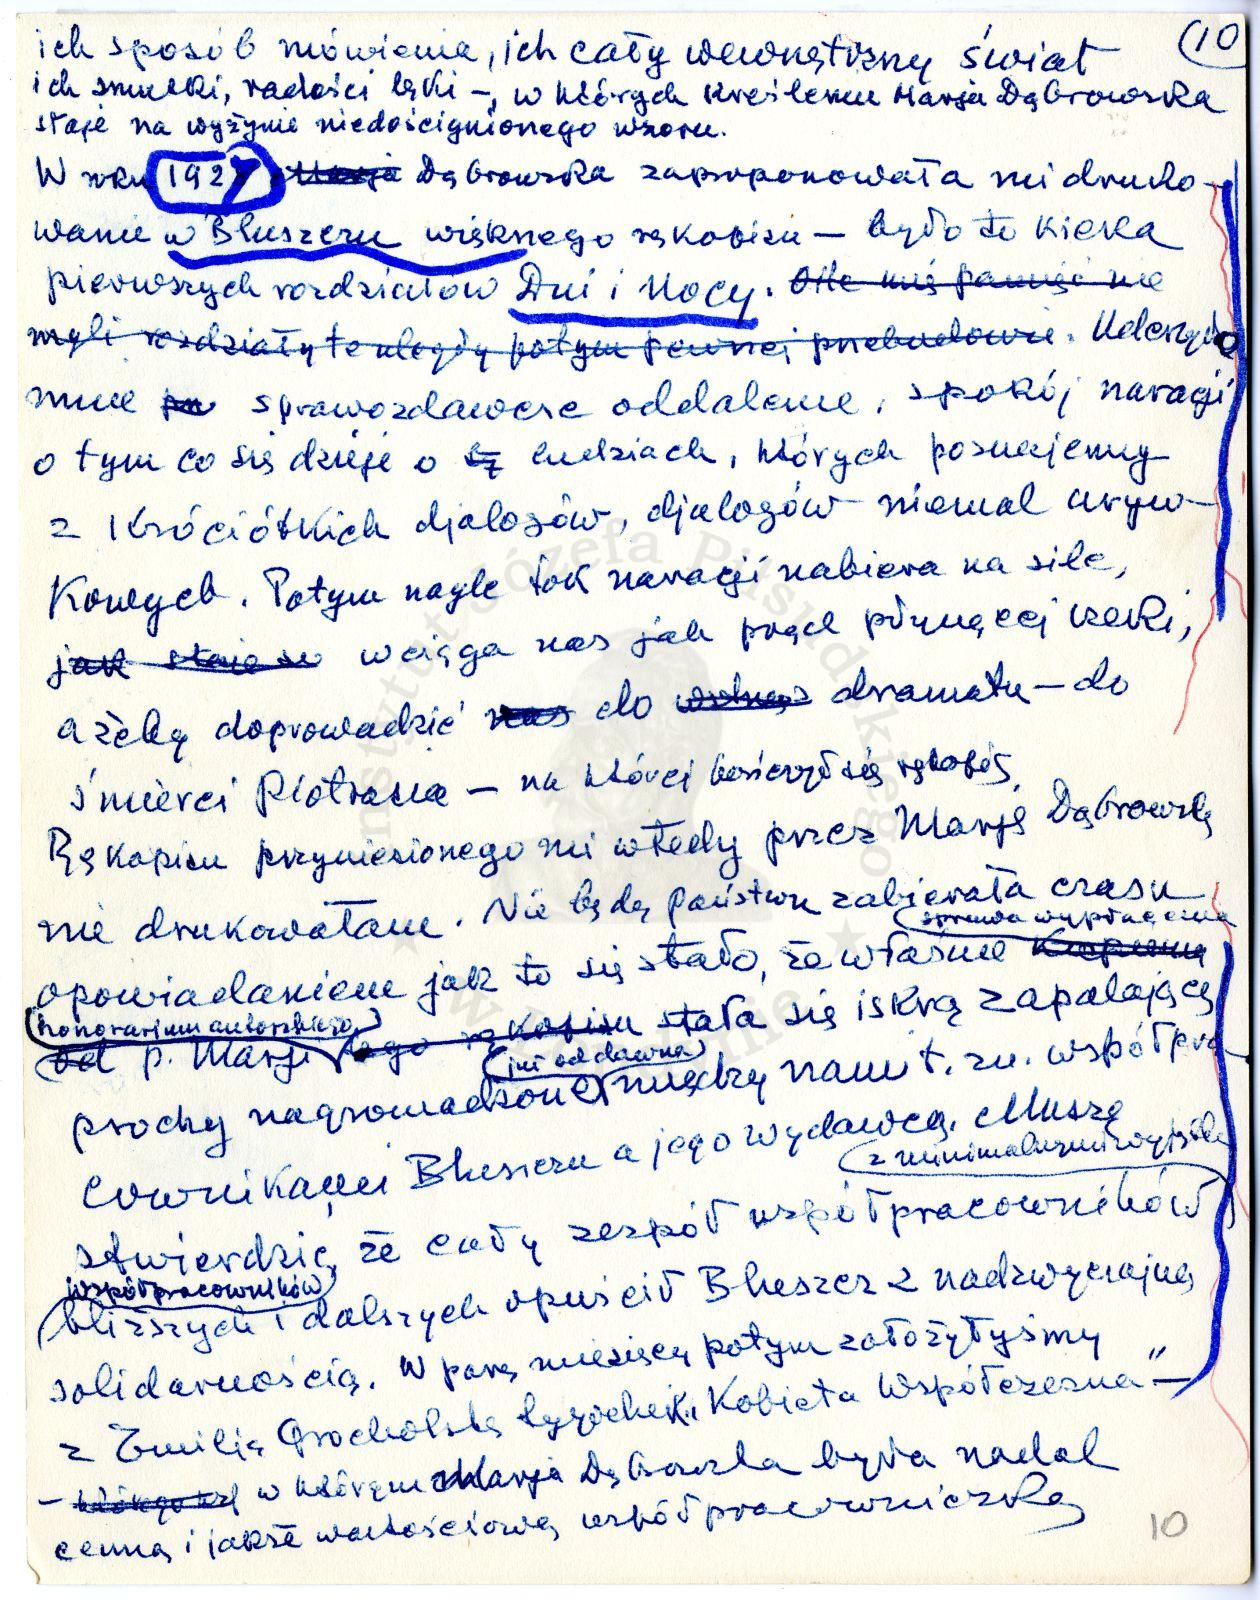 (10
ich sposób mówienia, ich cały wewnętrzny świat
ich smutki, radości lęki –, w których kreśleniu Marja Dąbrowska
staje na wyżynie niedoścignionego wzoru.
W roku 1927 Marja Dąbrowska zaproponowała mi druko-
wanie w Bluszczu większego rękopisu – było to kilka
pierwszych rozdziałów Dni i Nocy. O ile mię pamięć nie
myli rozdziały te uległy potym pewnej przebudowie. Uderzyło
mnie sprawozdawcze oddalenie, spokój naracji
o tym co się dzieje o ludziach, których poznajemy
z króciótkich djalogów, djalogów niemal uryw-
kowych. Potym nagle tok naracji nabiera na sile,
jak staje się wciąga nas jak prąd płynącej rzeki,
ażeby doprowadzić nas do dramatu – do
śmierci Piotrusia – na której kończył się rękopis.
Rękopisu przyniesionego mi wtedy przez Marję Dąbrowską
nie drukowałam. Nie będę państwu zabierała czasu
sprawa wypłacenia
opowiadaniem jak to się stało, że właśnie
honorarium autorskiego
od p. Marji tego rękopisu stała się iskrą zapalającą
już od dawna
prochy nagromadzone między nami t. zn. współpra-
cownikami Bluszczu a jego wydawcą. Muszę
z minimalnymi wyjątk
stwierdzić, że cały zespół współpracowników
współpracowników
bliższych i dalszych opuścił Bluszcz z nadzwyczajną
solidarnością. W parę miesięcy potym założyłyśmy
z Emilją Grocholską tygodnik „Kobieta Współczesna" –
– w którym Marja Dąbrowska była nadal
cenną i jakże wartościową współpracowniczką
10
Instytut Józefa Piłsudskiego
w Londynie